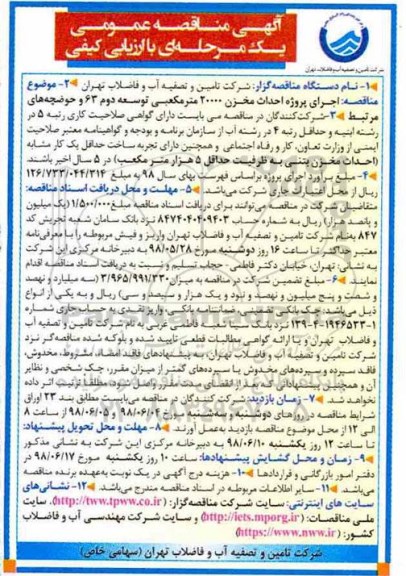 آگهی مناقصه عمومی
یک مرحله‌ای با ارزیابی کیفی
شرکت تامین و تصفیه آب و فاضلاب تهران
۱- نام دستگاه مناقصه‌گزار: شرکت تامین و تصفیه آب و فاضلاب تهران ۲- موضوع
مناقصه: اجرای پروژه احداث مخزن ۲۰۰۰۰ مترمکعبی توسعه دوم ۶۳ و حوضچه‌های
مرتبط ۳- شرکت‌کنندگان در مناقصه می بایست دارای گواهی صلاحیت کاری رتبه ۵ در
رشته ابنیه و حداقل رتبه ۴ در رشته آب از سازمان برنامه و بودجه و گواهینامه معتبر صلاحیت
ایمنی از وزارت تعاون، کار و رفاه اجتماعی و همچنین دارای تجربه ساخت حداقل یک کار مشابه
(احداث مخزن بتنی به ظرفیت حداقل ۵ هزار متر مکعب) در ۵ سال اخیر باشند.
۴- مبلغ برآورد اجرای پروژه براساس فهرست بهای سال ۹۸ به مبلغ ۱۲۶/۷۳۳/۰۴۴/۳۱۴
ریال از محل اعتبارات داخلی شرکت می‌باشد. ۵- مهلت و محل دریافت اسناد مناقصه:
متقاضیان شرکت در مناقصه می توانند برای دریافت اسناد مناقصه مبلغ ۱/۵۰۰/۰۰۰ (یک میلیون
و پانصد هزار) ریال به شماره حساب ۸۴۷۴۰۴۰۴۰۹۴۰۳ نزد بانک سامان شعبه تجریش کد
۸۴۷ بنام شرکت تامین و تصفیه آب و فاضلاب تهران واریز و فیش مربوطه را با معرفی‌نامه
معتبر حداکثر تا ساعت ۱۶ روز دوشنبه مورخ ۹۸/۰۵/۲۸ به دبیرخانه مرکزی این شرکت
به نشانی: تهران، خیابان دکتر فاطمی - حجاب تسلیم و نسبت به دریافت اسناد مناقصه اقدام
نمایند. ۶- مبلغ تضمین شرکت در مناقصه به میزان ۳/۹۶۵/۹۹۱/۳۳۰ (سه میلیارد و نهصد
و شصت و پنج میلیون و نهصد و نود و یک هزار و سیصد و سی) ریال و به یکی از انواع
ذیل می‌باشد: چک بانکی تضمین شده، ضمانتنامه بانکی، واریز نقدی به حساب جاری شماره
نزد بانک سینا شعبه فاطمی غربی به نام شرکت تامین و تصفیه آب
و فاضلاب تهران و یا ارائه گواهی مطالبات قطعی تایید شده و بلوکه شده نزد
شرکت تامین و تصفیه آب و فاضلاب تهران، به پیشنهادهای فاقد امضاء، مشروط، مخدوش،
فاقد سپرده و سپرده‌های مخدوش یا سپرده‌های کمتر از میزان مقرر، چک شخصی و نظایر
آن و همچنین پیشنهاداتی که بعد از انقضای مدت مقرر واصل شود مطلقا ترتیب اثر داده
نخواهد شد. ۷- زمان بازدید: شرکت کنندگان در مناقصه می‌بایست مطابق بند ۲۳ اوراق
شرایط مناقصه در روزهای دوشنبه و سه‌شنبه مورخ ۹۸/۰۶/۰۴ و ۹۸/۰۶/۰۵ از ساعت ۸
الی ۱۲ از محل موضوع مناقصه بازدید به‌عمل آورند. ۸- مهلت و محل تحویل پیشنهاد:
تا ساعت ۱۲ روز یکشنبه ۹۸/۰۶/۱۰ به دبیرخانه مرکزی این شرکت به نشانی مذکور
۹- زمان و محل گشایش پیشنهادها: ساعت ۱۰ روز یکشنبه مورخ ۹۸/۰۶/۱۷ در
دفتر امور بازرگانی و قراردادها ۱۰- هزینه درج آگهی در یک نوبت به‌عهده برنده مناقصه
می‌باشد. ۱۱- سایر اطلاعات مربوطه در اسناد مناقصه مندرج می‌باشد. ۱۲- نشانی‌های
سایت های اینترنتی: سایت شرکت مناقصه‌گزار: (http://tww.tpww.co.ir)، سایت
ملی مناقصات: (http://iets.mporg.ir) و سایت شرکت مهندسی آب و فاضلاب
کشور: (https://www.nww.ir)
شرکت تامین و تصفیه آب و فاضلاب تهران (سهامی خاص)